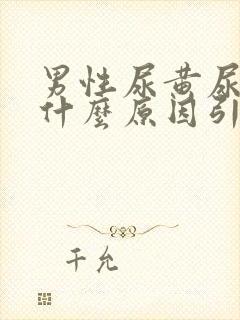 男性尿黄尿
什麼原因引
千允